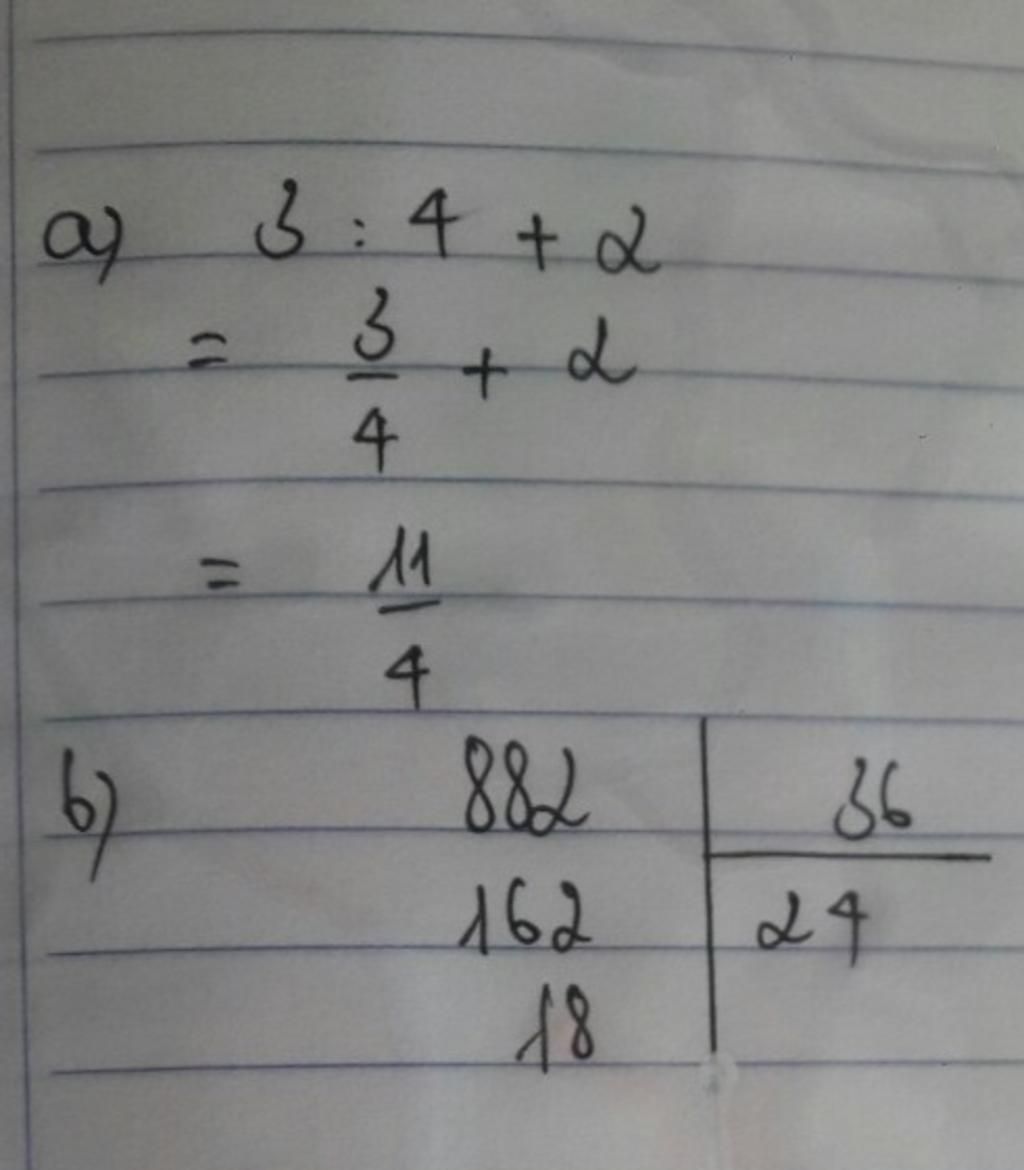 a) 3 : 4 + 2
= 3/4 + 2
= 11/4
b) 882 | 36
162 | 24
18